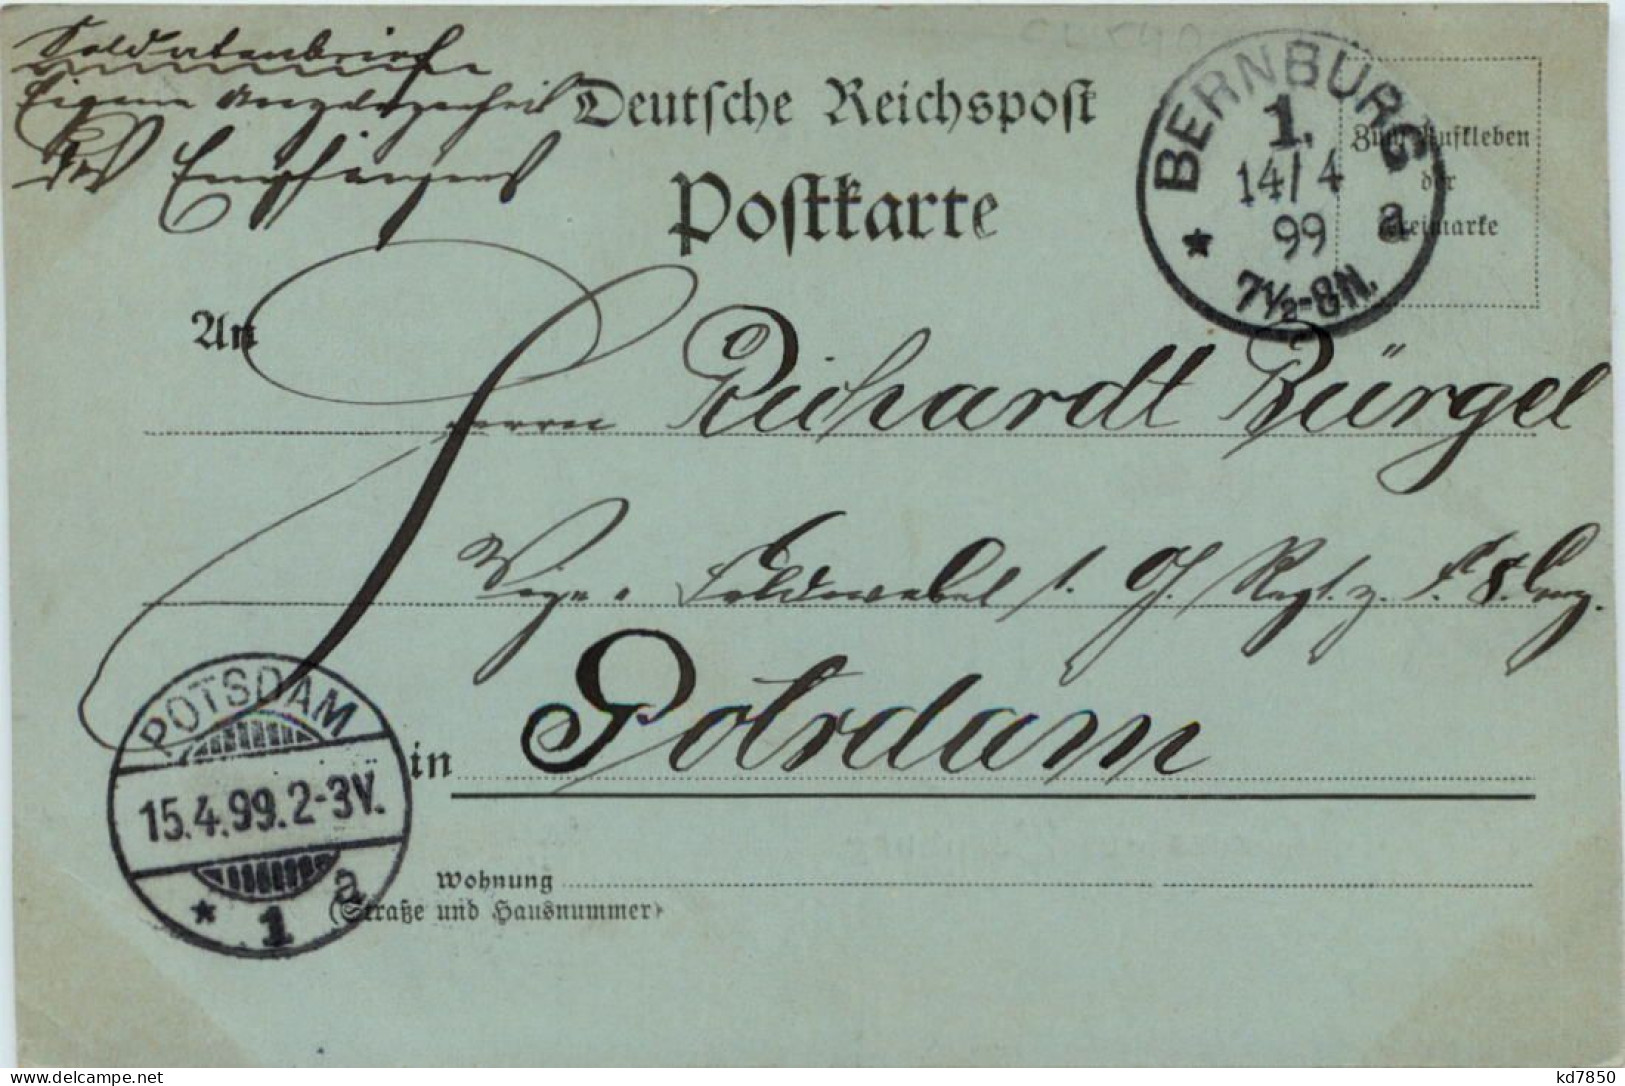 Soldatenbrief
Eigene Angelegenheit
des Empfängers
Deutsche Reichspost
Postkarte
Zum Aufkleben
der
Freimarke
BERNBURG
1.
14/4
99
7½-8N.
* a
An
Herrn Richardt Bürgel
Feldwebel 1. G. Regt. z. F. 8. Comp.
in Potsdam
POTSDAM
15.4.99.2-3V.
* 1 a
Wohnung
(Straße und Hausnummer)
kd7850